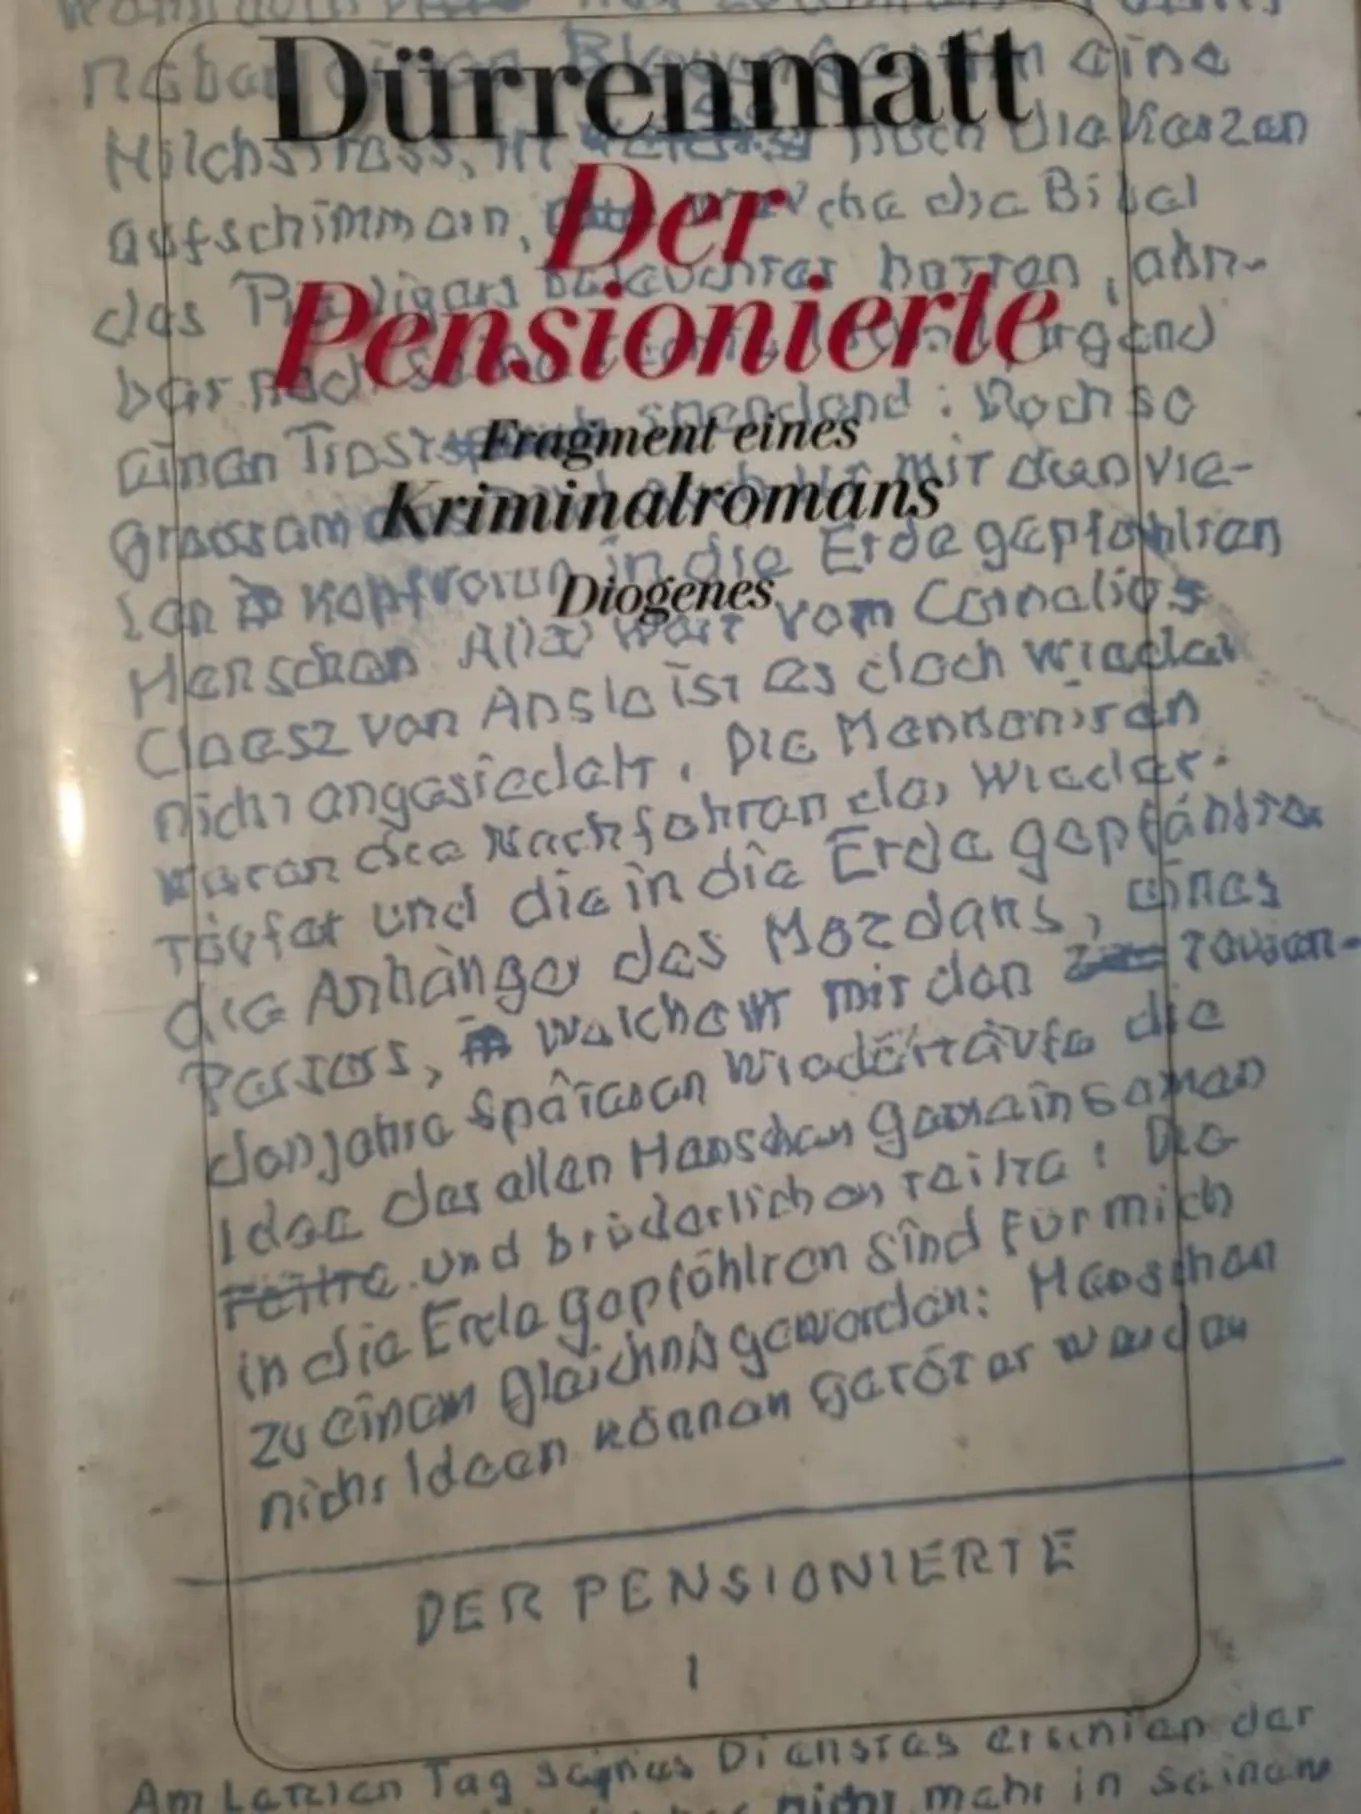 Dürrenmatt
Der
Pensionierte
Fragment eines
Kriminalromans
Diogenes
eine
Milchstrass, in noch die Kerzen
aufschimmern, welche die Bibel
des Predigers beleuchtet hatten, ahn-
bar nach irgend
einen Trost spendend: Noch so
grossam mit den vie-
len kopfvoran in die Erde gepfählten
Menschen Alla wart vom Cornelius
Claesz van Anslo ist es doch wieder
nicht angesiedelt. Die Mennoniten
waren die Nachfahren der Wieder-
täufer und die in die Erde gepfählte
die Anhänger des Mazdaks, eines
Persers, welcher mit den tausen-
den jahre späteren Wiedertäufe die
Idee des allen Menschen gemeinsamen
reihte und brüderlichen teilte: Die
in die Erde gepfählten sind für mich
zu einem Gleichnis geworden: Menschen
nicht Ideen können getötet werden
DER PENSIONIERTE
1
Am Letzten Tag seines Dienstes erschien der
nicht mehr in seinem